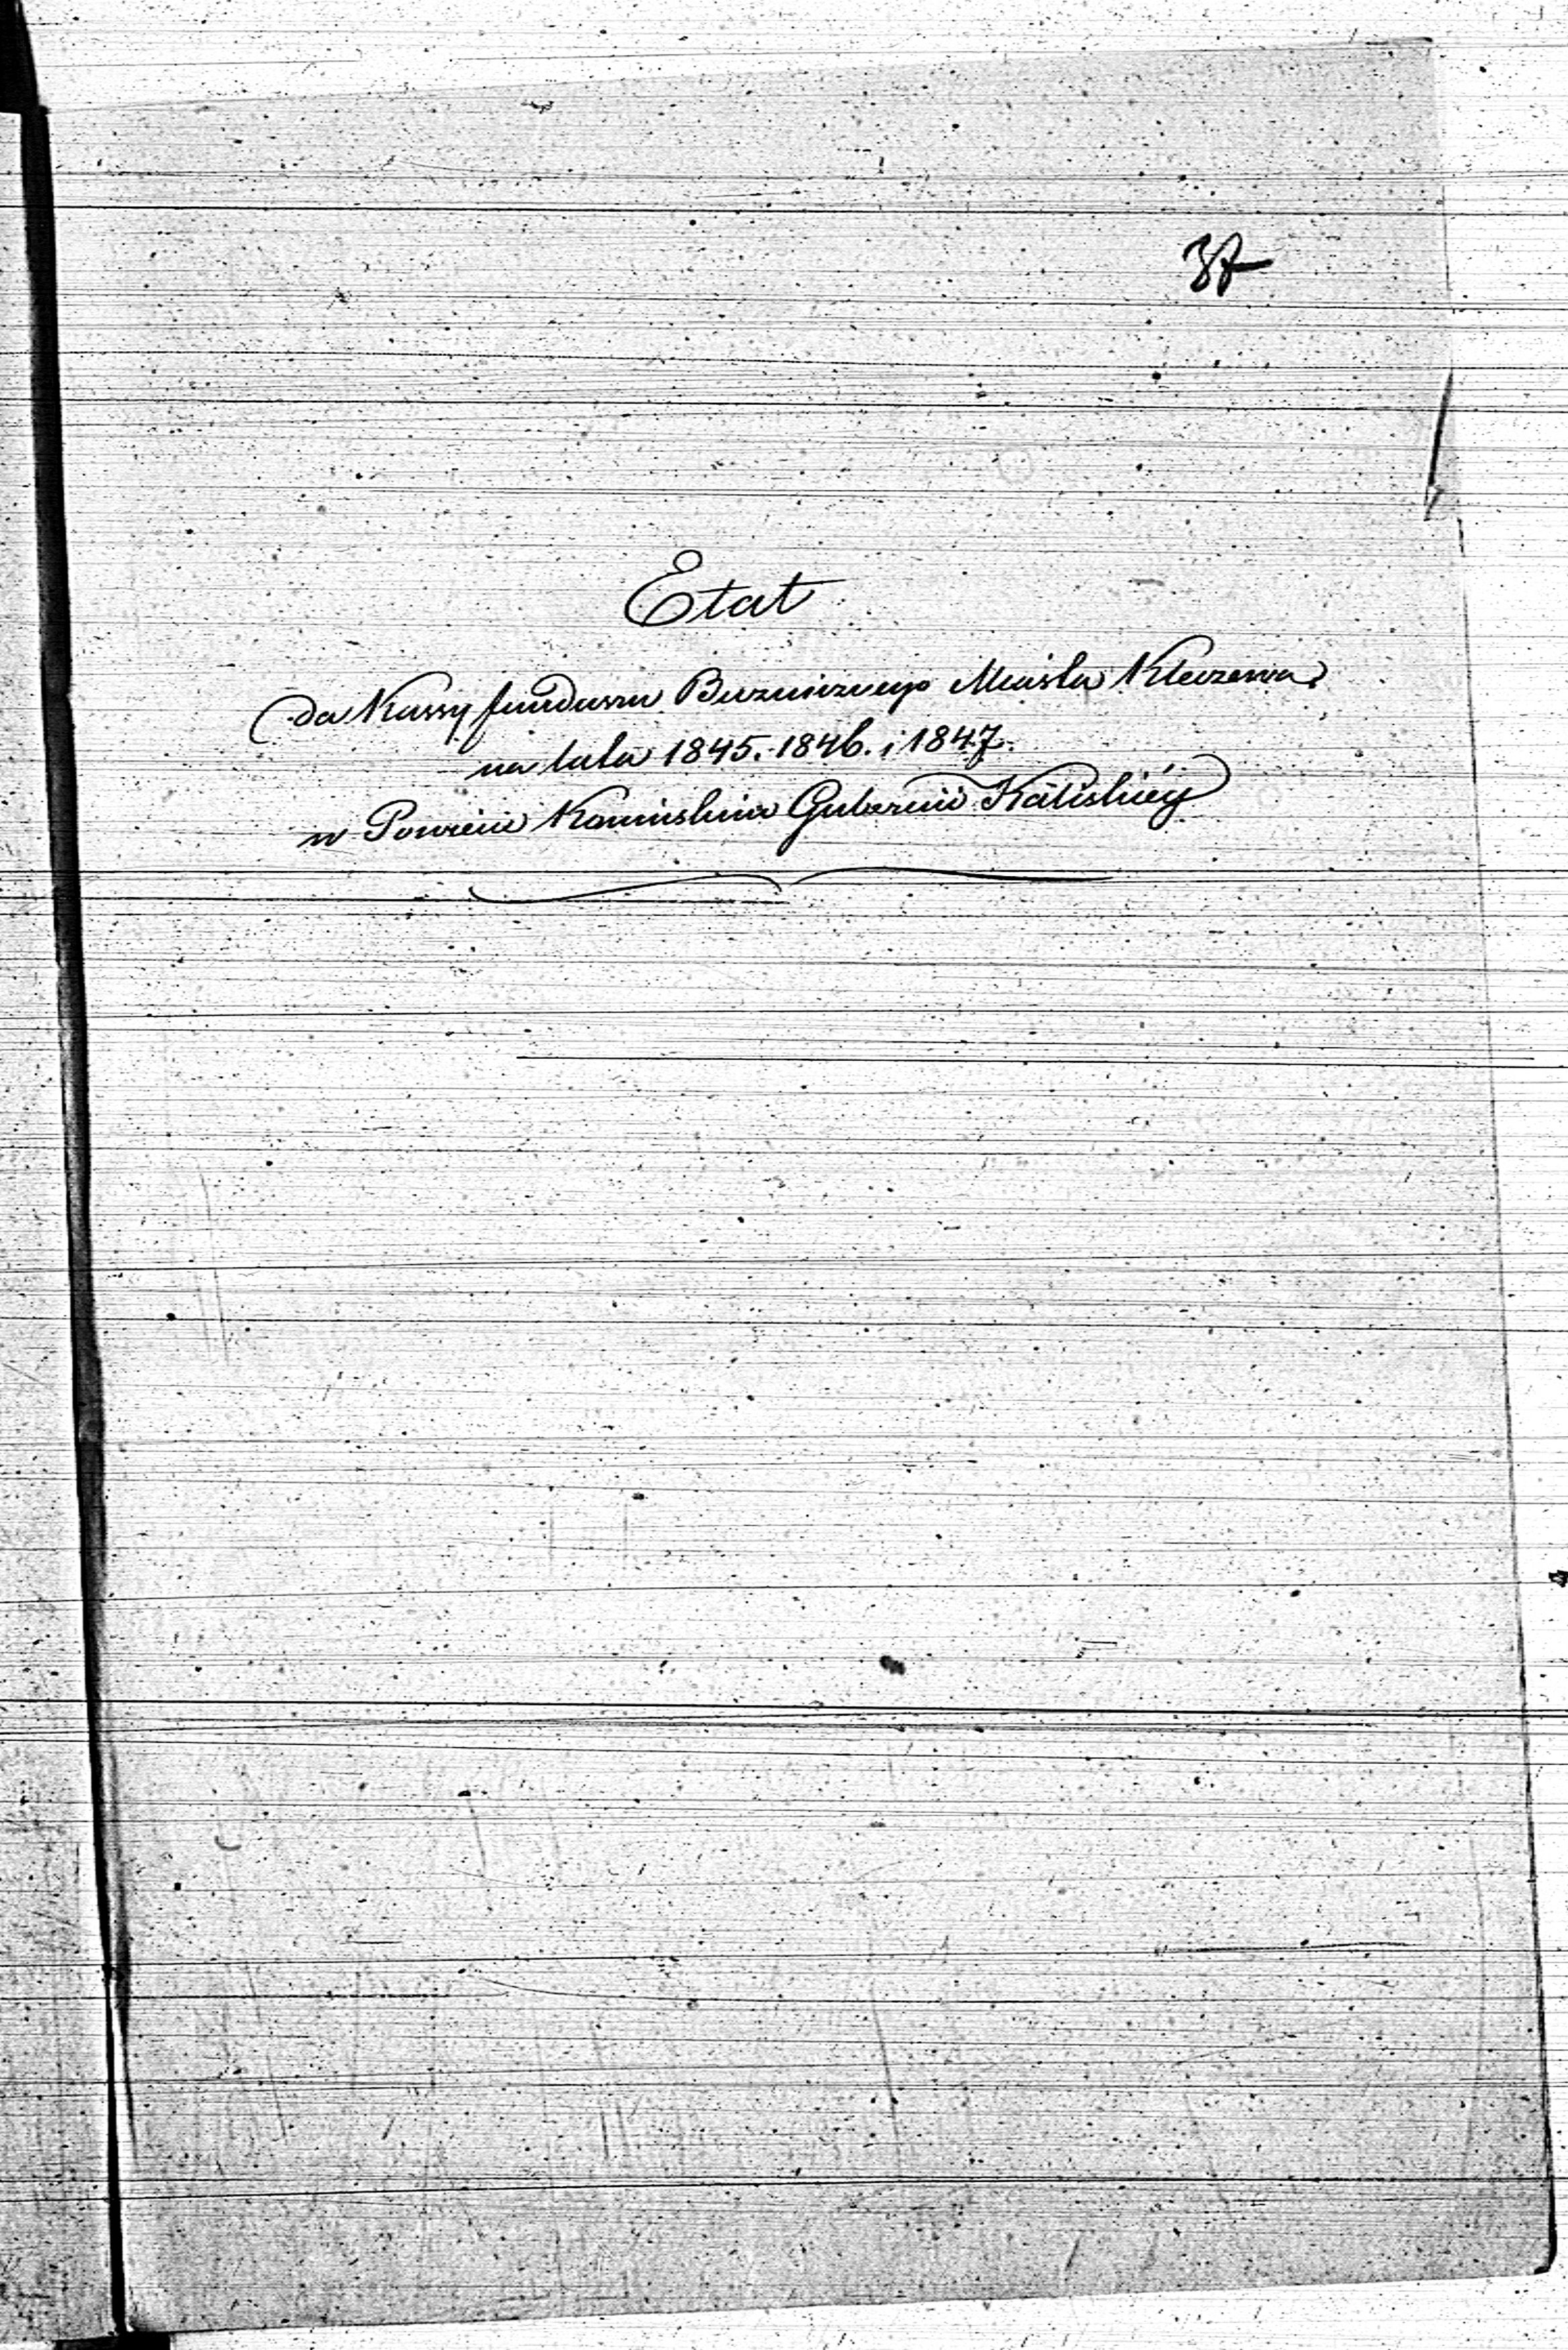 37
Etat
Dla Kassy funduszu Bożniczego Miasta Kleczewa
na lata 1845. 1846. i 1847.
w Powiecie Konińskim Gubernii Kaliskiéy